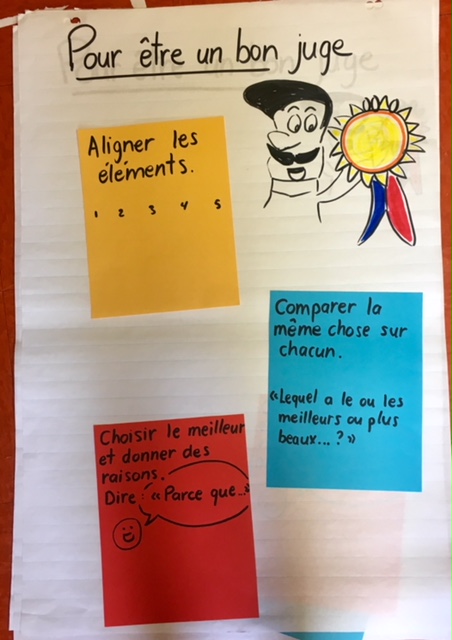 Pour être un bon juge
Aligner les
éléments.
1 2 3 4 5
Comparer la
même chose sur
chacun.
«Lequel a le ou les
meilleurs ou plus
beaux...?»
Choisir le meilleur
et donner des
raisons.
Dire : «Parce que...»